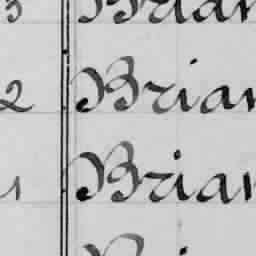 3 Brian
2 Brian
Brian